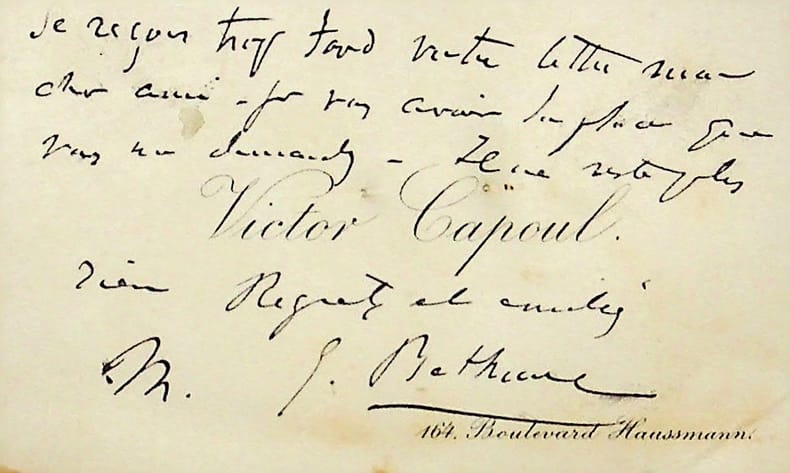 Je reçois trop tard votre lettre mon
cher ami - pr vs avoir la place que
vous me demandez - Il ne reste plus
Victor Capoul.
rien Regrets et amitiés
M. G. Bethune
164. Boulevard Haussmann.